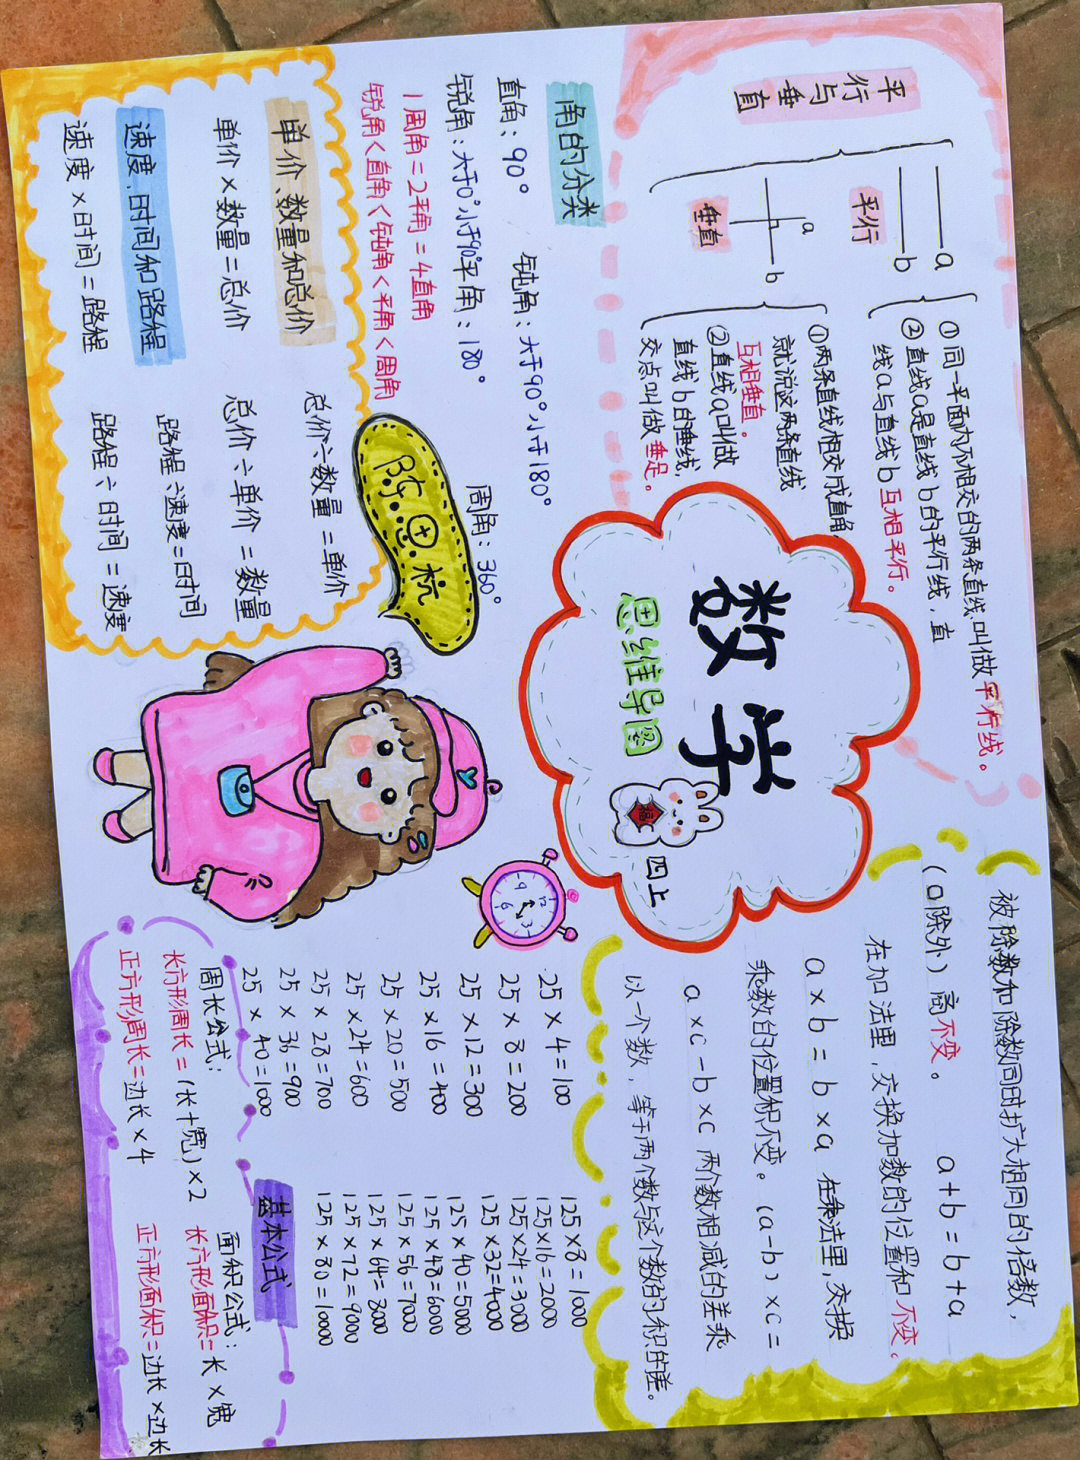 数学
思维导图
四上
福
平行与垂直
a
b
平行
a
b
垂直
①同一平面内不相交的两条直线叫做平行线。
②直线a是直线b的平行线，直
线a与直线b互相平行。
①两条直线相交成直角，
就说这两条直线
互相垂直。
②直线a叫做
直线b的垂线，
交点叫做垂足。
角的分类
直角：90°
钝角：大于90°小于180°
锐角：大于0°小于90°
平角：180°
周角：360°
1周角=2平角=4直角
锐角<直角<钝角<平角<周角
单价、数量和总价
总价÷数量=单价
单价×数量=总价
总价÷单价=数量
速度、时间和路程
路程÷速度=时间
速度×时间=路程
路程÷时间=速度
12
3
6
9
被除数和除数同时扩大相同的倍数，
（0除外）商不变。
a+b=b+a
在加法里，交换加数的位置和不变。
a×b=b×a 在乘法里，交换
乘数的位置积不变。(a-b)×c=
a×c-b×c 两个数相减的差乘
以一个数，等于两个数与这个数的积的差。
25×4=100
25×8=200
25×12=300
25×16=400
25×20=500
25×24=600
25×28=700
25×36=900
25×40=1000
125×8=1000
125×16=2000
125×24=3000
125×32=4000
125×40=5000
125×48=6000
125×56=7000
125×64=8000
125×72=9000
125×80=10000
基本公式
周长公式：
长方形周长=(长+宽)×2
正方形周长=边长×4
面积公式：
长方形面积=长×宽
正方形面积=边长×边长